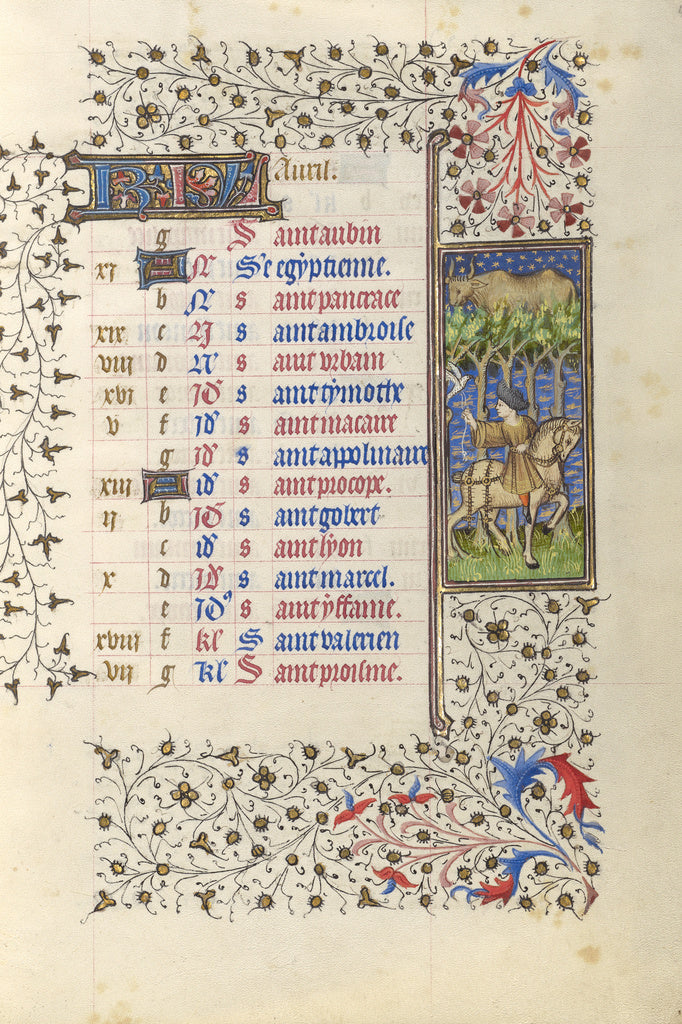 Auril.
g S aint aubin
xi A N Ste egyptienne.
b N s aint pancrace
xix c N s aint ambroise
viii d N s aint vrbain
xvi e id s aint tymothe
v f id s aint macaire
g id s aint appolinaire
xiii A id s aint procope.
ii b id s aint gobert
c id s aint lyon
x d id s aint marcel.
e id9 s aint yffanie.
xviii f kl S aint valerien
vii g kl S aint proisme.